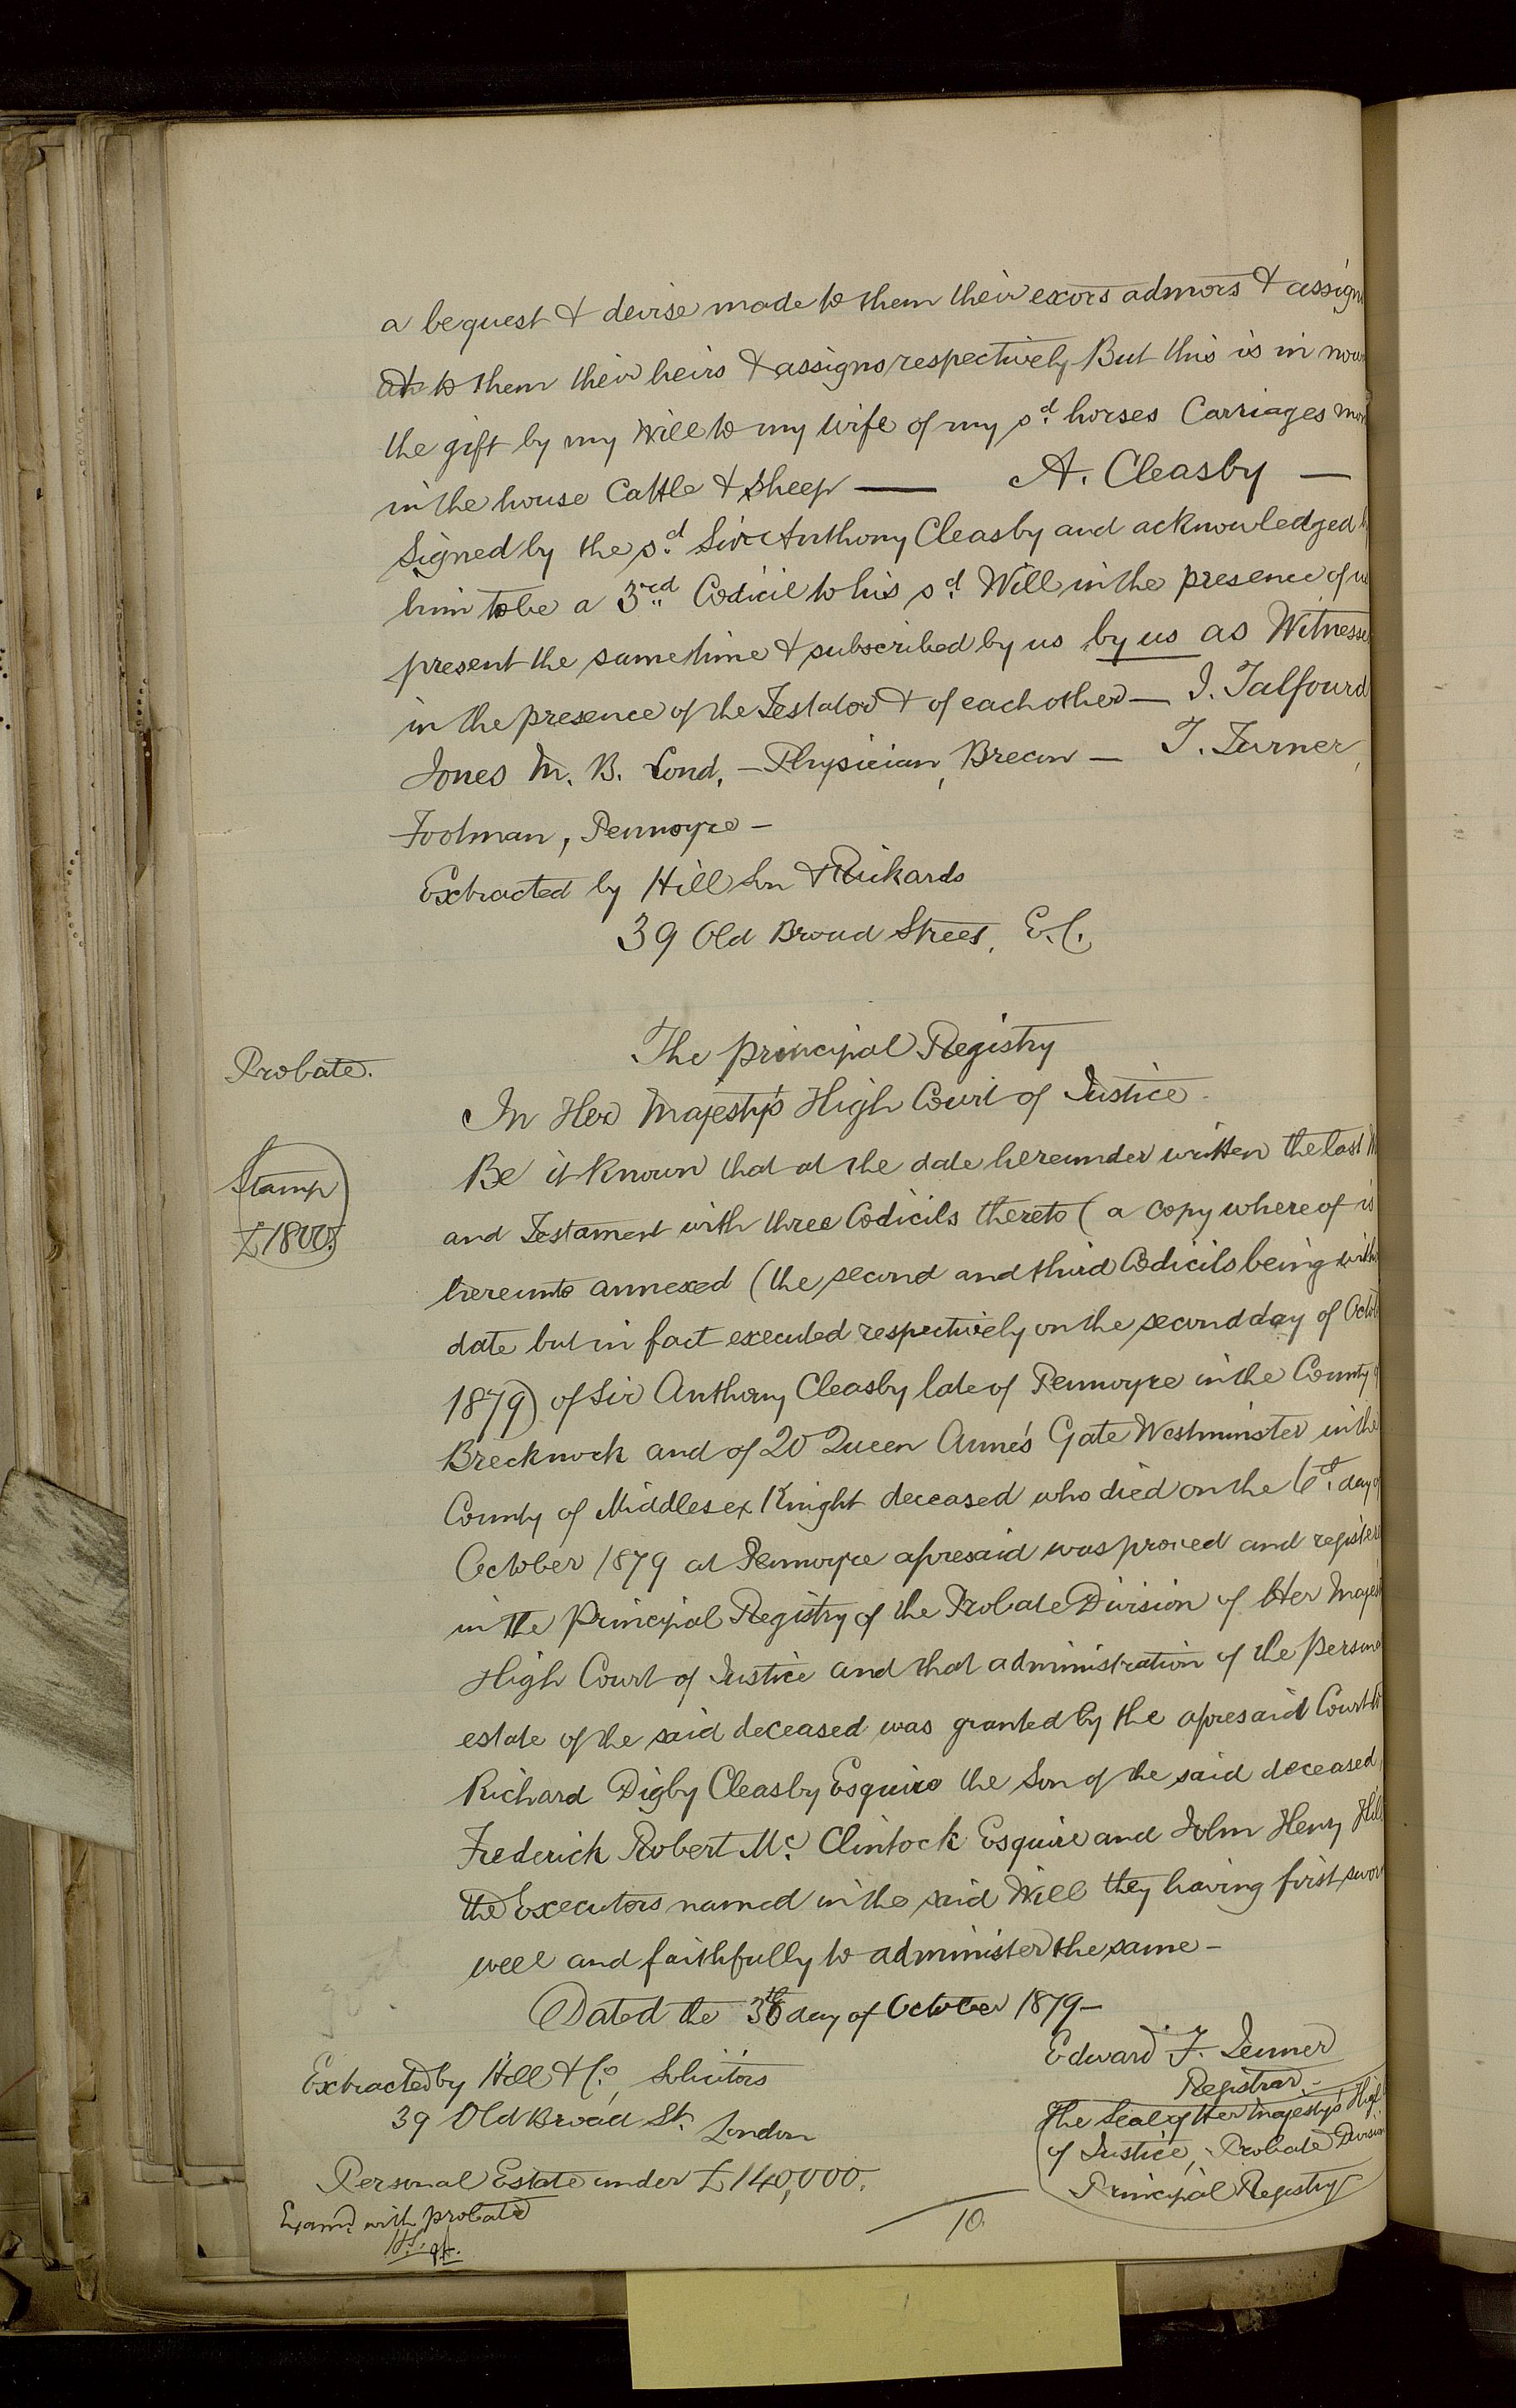 a bequest & devise made to them their exors admors & assigns
to them their heirs & assigns respectively But this is in now
the gift by my Will to my wife of my sd. horses Carriages mon
in the house Cattle & Sheep — A. Cleasby —
Signed by the sd. Sir Anthony Cleasby and acknowledged
him to be a 3rd Codicil to his sd. Will in the presence of us
present the same time & subscribed by us by us as Witnesses
in the presence of the Testator & of each other — I. Talfourd
Jones M. B. Lond, – Physician, Brecon — T. Turner,
Footman, Pennoyre –
Extracted by Hill Son & Rickards
39 Old Broad Street, E.C.
The Principal Registry
Probate.
In Her Majesty's High Court of Justice.
Be it Known that at the date hereunder written the last
Stamp
£1800.
and Testament with three Codicils thereto (a copy whereof is
hereunto annexed (the second and third Codicils being with
date but in fact executed respectively on the second day of Octob
1879) of Sir Anthony Cleasby late of Pennoyre in the County
Brecknock and of 20 Queen Anne's Gate Westminster in the
County of Middlesex Knight deceased who died on the 6th. day of
October 1879 at Pennoyre aforesaid was proved and register
in the Principal Registry of the Probate Division of Her Majest
High Court of Justice and that administration of the Persona
estate of the said deceased was granted by the aforesaid Court to
Richard Digby Cleasby Esquire the Son of the said deceased
Frederick Robert Mc. Clintock Esquire and John Henry Hill
the Executors named in the said Will they having first sworn
well and faithfully to administer the same –
Dated the 30th day of October 1879 –
Edward F. Jenner
Registrar –
Extracted by Hill & Co., Solicitors
39 Old Broad St. London
The Seal of Her Majesty's High
of Justice, Probate Division
Principal Registry
Personal Estate under £140,000.
Examd. with probate
10.